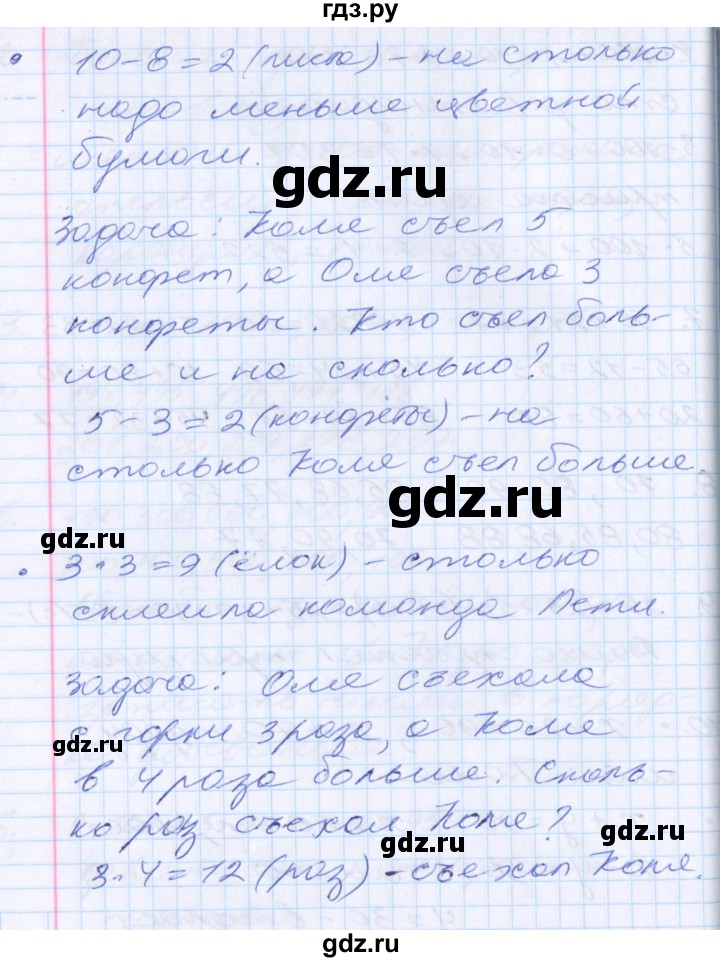 гдз.ру
10-8=2 (листа) - на столько
надо меньше цветной
бумаги.
gdz.ru
Задача: Коля съел 5
конфет, а Оля съела 3
конфеты. Кто съел боль-
ше и на сколько?
gdz.ru
5-3=2 (конфеты) - на
столько Коля съел больше.
gdz.ru
gdz.ru
3·3=9 (ёлок) - столько
склеила команда Пети.
Задача: Оля съехала
с горки 3 раза, а Коля
gdz.ru
в 4 раза больше. Сколь-
ко раз съехал Коля?
gdz.ru
gdz.ru
3·4=12 (раз) - съехал Коля.
gdz.ru